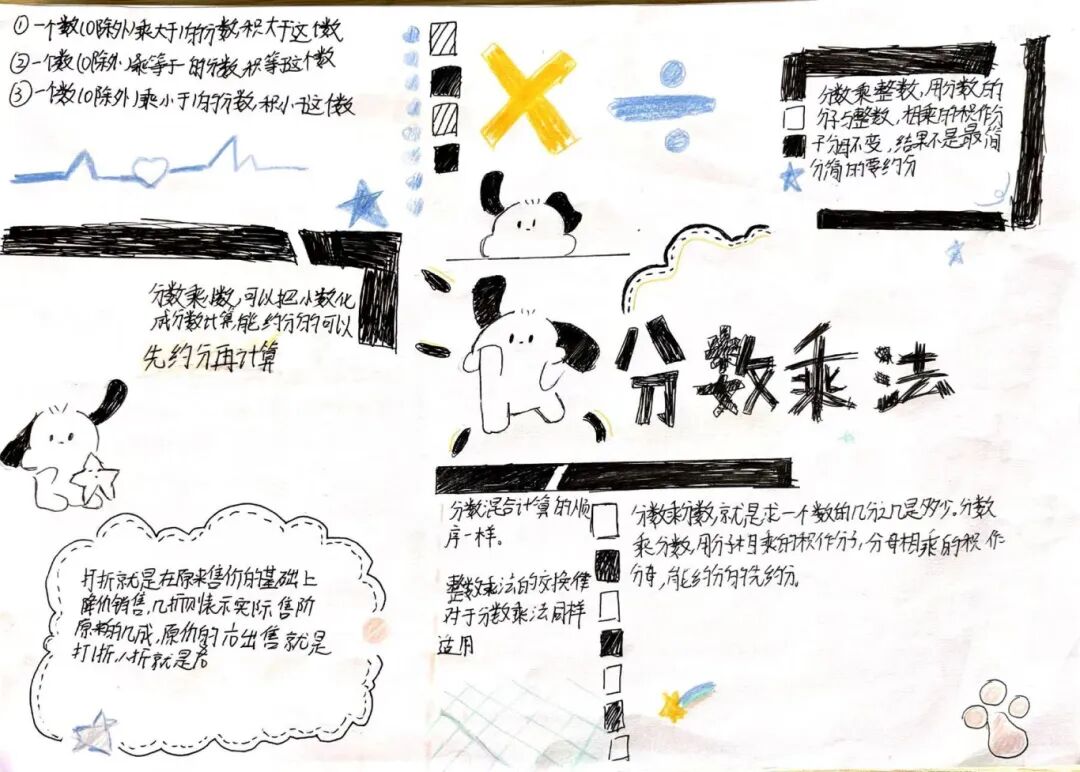 ①一个数(0除外)乘大于1的分数,积大于这个数
②一个数(0除外)乘等于1的分数,积等于这个数
③一个数(0除外)乘小于1的分数,积小于这个数
分数乘整数,用分数的
分子与整数,相乘的积作分
子分母不变,结果不是最简
分简的要约分
分数乘小数,可以把小数化
成分数计算,能约分的可以
先约分再计算
分数乘法
分数混合计算的顺
序一样。
整数乘法的交换律
对于分数乘法同样
适用
分数乘分数,就是求一个数的几分之几是多少。分数
乘分数,用分子相乘的积作分子,分母相乘的积作
分母,能约分的先约分。
打折就是在原来售价的基础上
降价销售,几折则表示实际售阶
原来的几成,原价的 出售就是
打1折,八折就是